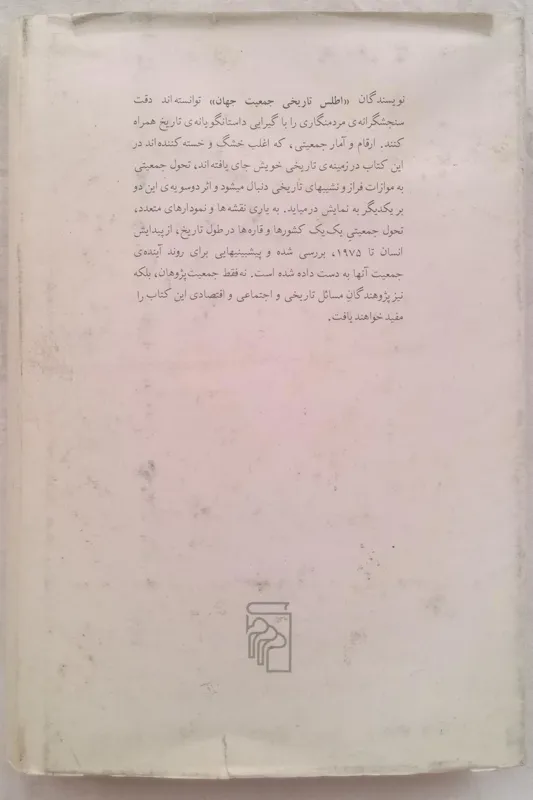 نویسندگان «اطلس تاریخی جمعیت جهان» توانسته‌اند دقت
سنجشگرانه‌ی مردمنگاری را با گیرایی داستانگویانه‌ی تاریخ همراه
کنند. ارقام و آمار جمعیتی، که اغلب خشگ و خسته کننده‌اند در
این کتاب در زمینه‌ی تاریخی خویش جای یافته‌اند، تحول جمعیتی
به موازات فراز و نشیبهای تاریخی دنبال میشود و اثر دوسویه‌ی این دو
بر یکدیگر به نمایش درمیاید. به یاری نقشه‌ها و نمودارهای متعدد،
تحول جمعیتیِ یک یک کشورها و قاره‌ها در طول تاریخ، از پیدایش
انسان تا ۱۹۷۵، بررسی شده و پیشبینیهایی برای روند آینده‌ی
جمعیت آنها به دست داده شده است. نه فقط جمعیت‌پژوهان، بلکه
نیز پژوهندگانِ مسائل تاریخی و اجتماعی و اقتصادی این کتاب را
مفید خواهند یافت.